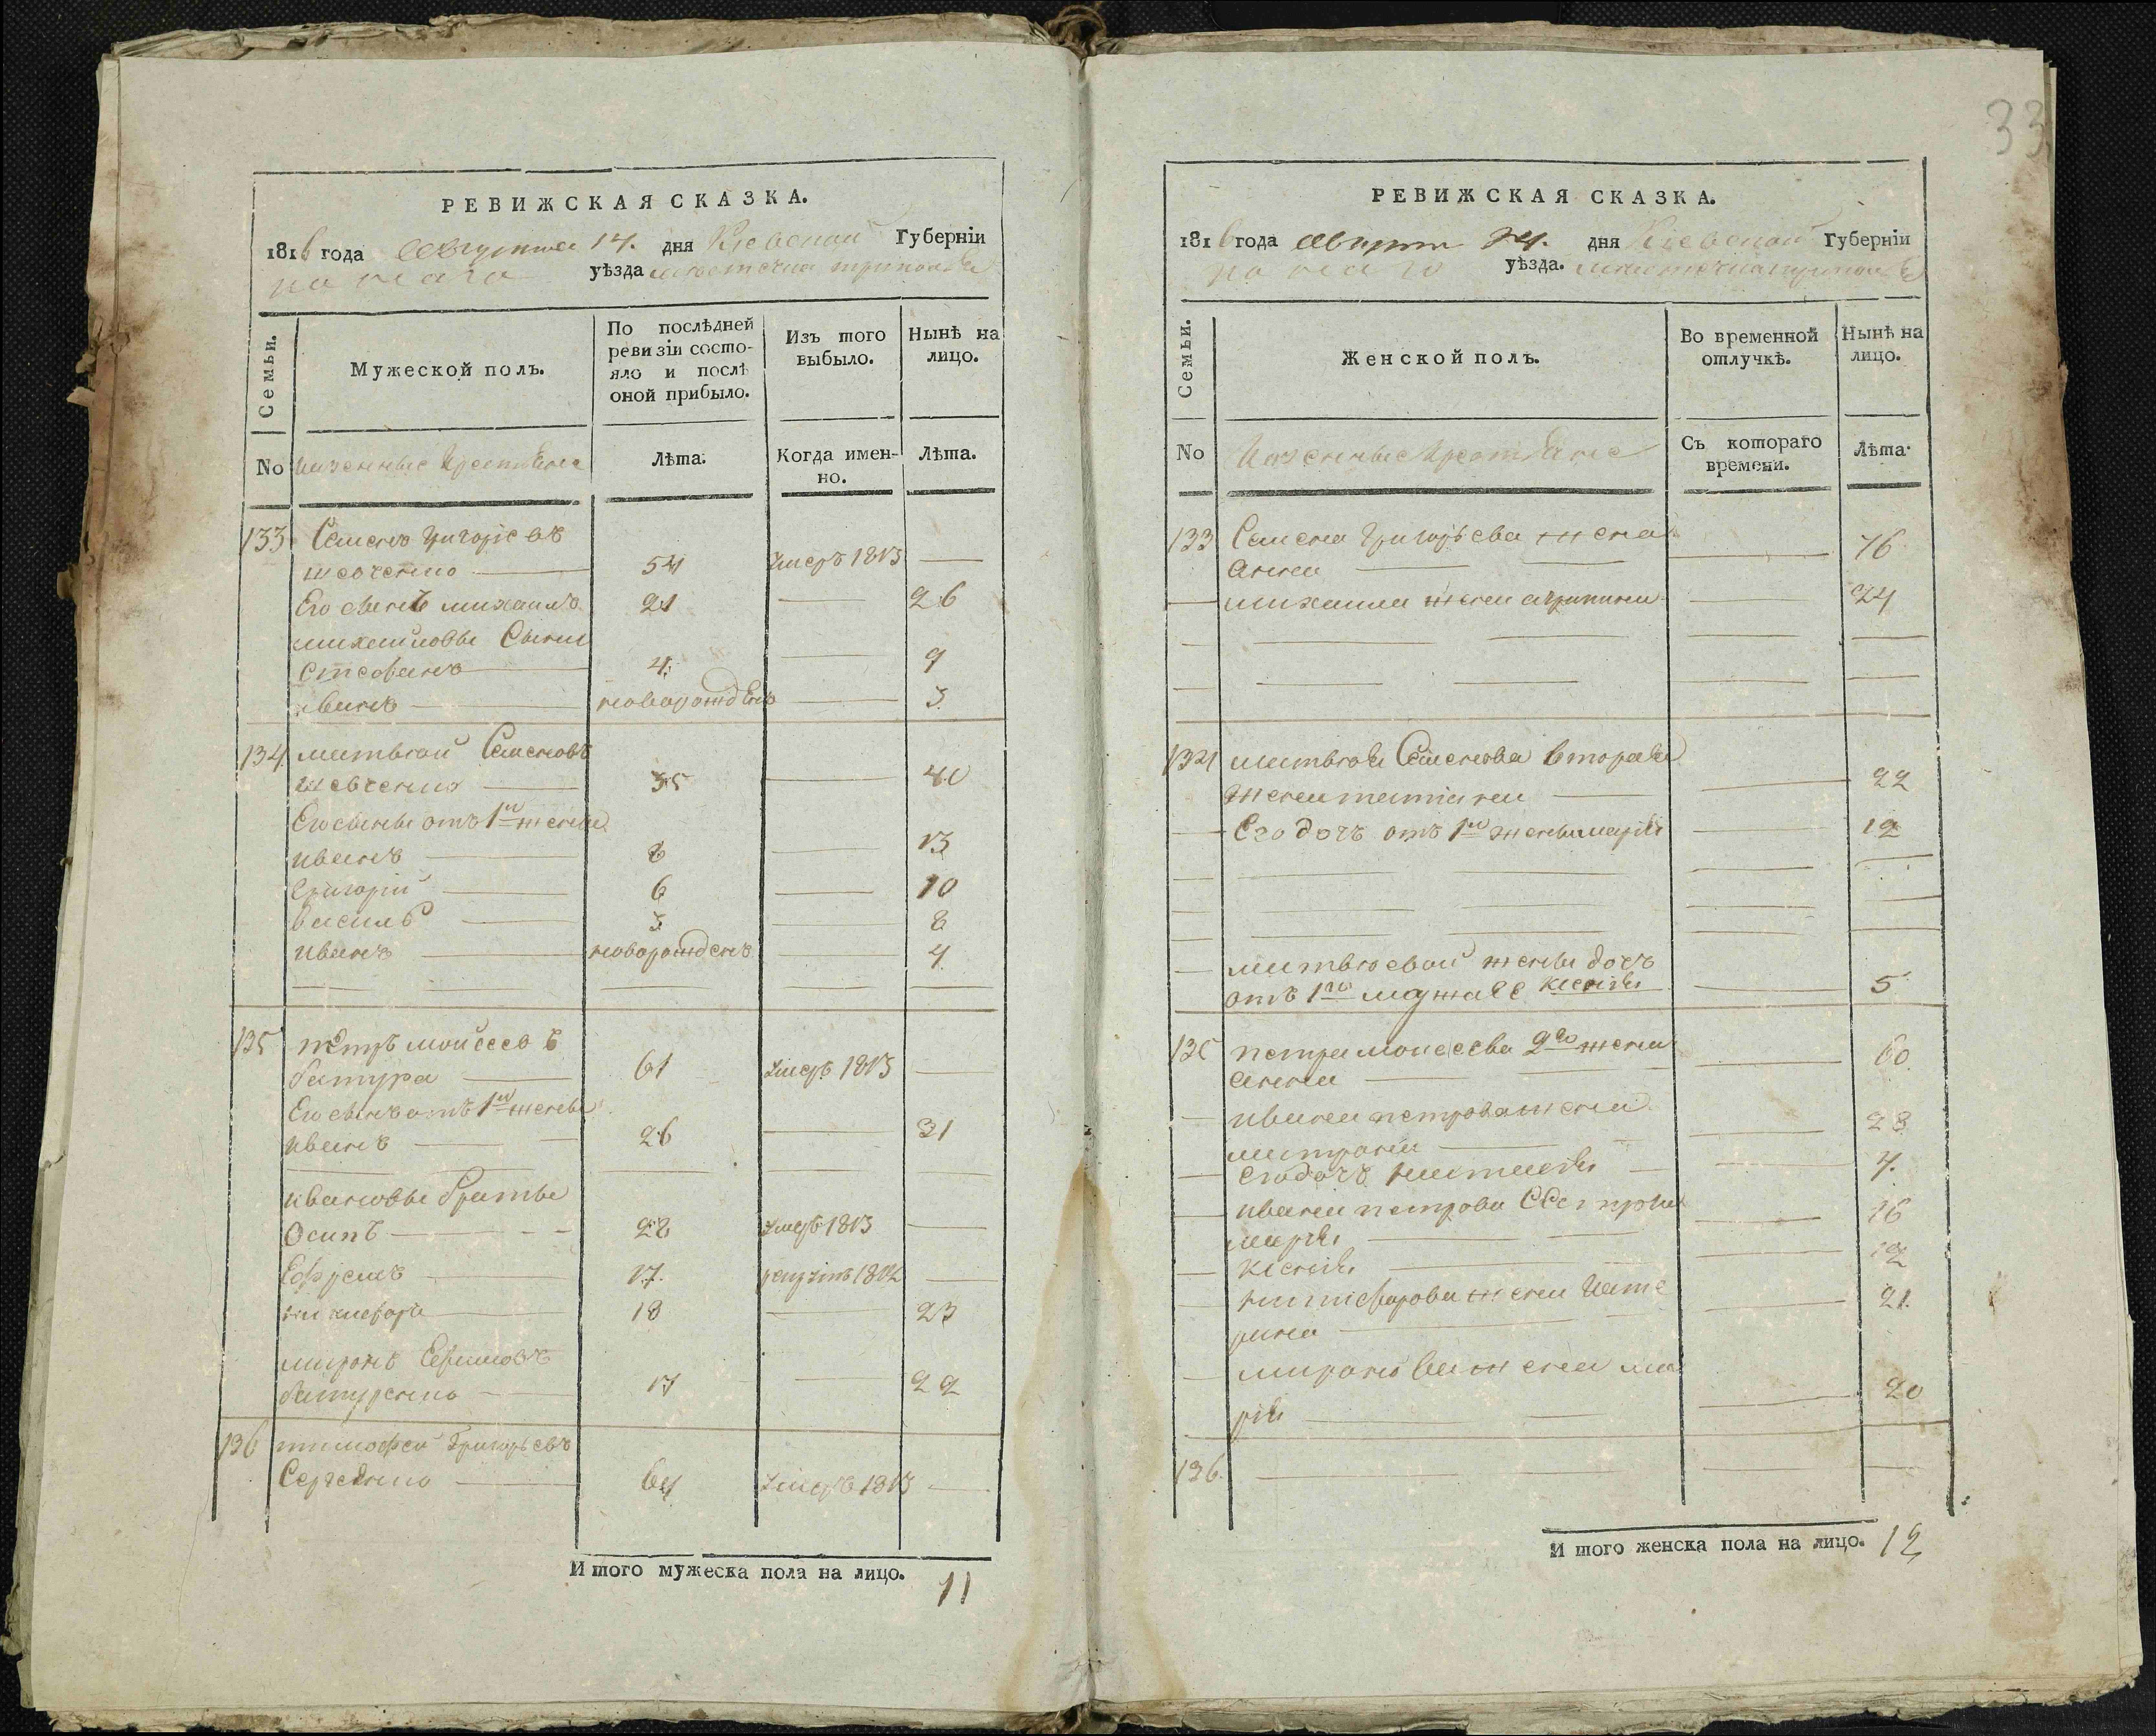 33
РЕВИЖСКАЯ СКАЗКА.
1816 года Августа 14. дня Киевской Губерніи
уѣзда местечка триполья
Семьи.
Мужеской полъ.
По послѣдней ревизіи состояло и послѣ оной прибыло.
Изъ того выбыло.
Нынѣ на лицо.
No
Лѣта.
Когда именно.
Лѣта.
133 Семенъ Григоріевъ
шевченко 54 Умеръ 1813
Его сынъ михаило 21 26
михайловы Сыны
Стефанъ 4 9
иванъ новорожденъ 3
134 матвей Семеновъ
шевченко 35 40
Его сыны отъ 1й жены
иванъ 8 13
Григорій 6 10
василь 3 8
иванъ новорожденъ 4
135 петръ мойсеевъ
батура 61 Умеръ 1813
Его сынъ отъ 1й жены
иванъ 26 31
ивановы братья
Осипъ 28 Умеръ 1813
Ефремъ 17 рекрутъ 1812
никифоръ 18 23
миронъ Ефимовъ
батуренко 17 22
136 тимофей Григорьевъ
64 Умеръ 1813
Итого мужеска пола на лицо. 11
РЕВИЖСКАЯ СКАЗКА.
1816 года Августа 14. дня Киевской Губерніи
уѣзда. местечка триполья
Семьи.
Женской полъ.
Во временной отлучкѣ.
Нынѣ на лицо.
No
Съ котораго времени.
Лѣта.
133 Семена Григорьева жена
анна 46
михаила жена агрипина 24
134 матвея Семенова вторая
жена татіана 22
Его дочъ отъ 1й жены марія 12
матвеевой жены дочъ
отъ 1го мужа ксенія 5
135 петра моисеева 2я жена
анна 60
ивана петрова жена
матрона 28
его дочъ настасія 4
ивана петрова сестры
марія 16
ксенія 12
никифорова жена Кате
рина 21
миронова жена ма
рія 20
136
Итого женска пола на лицо. 12